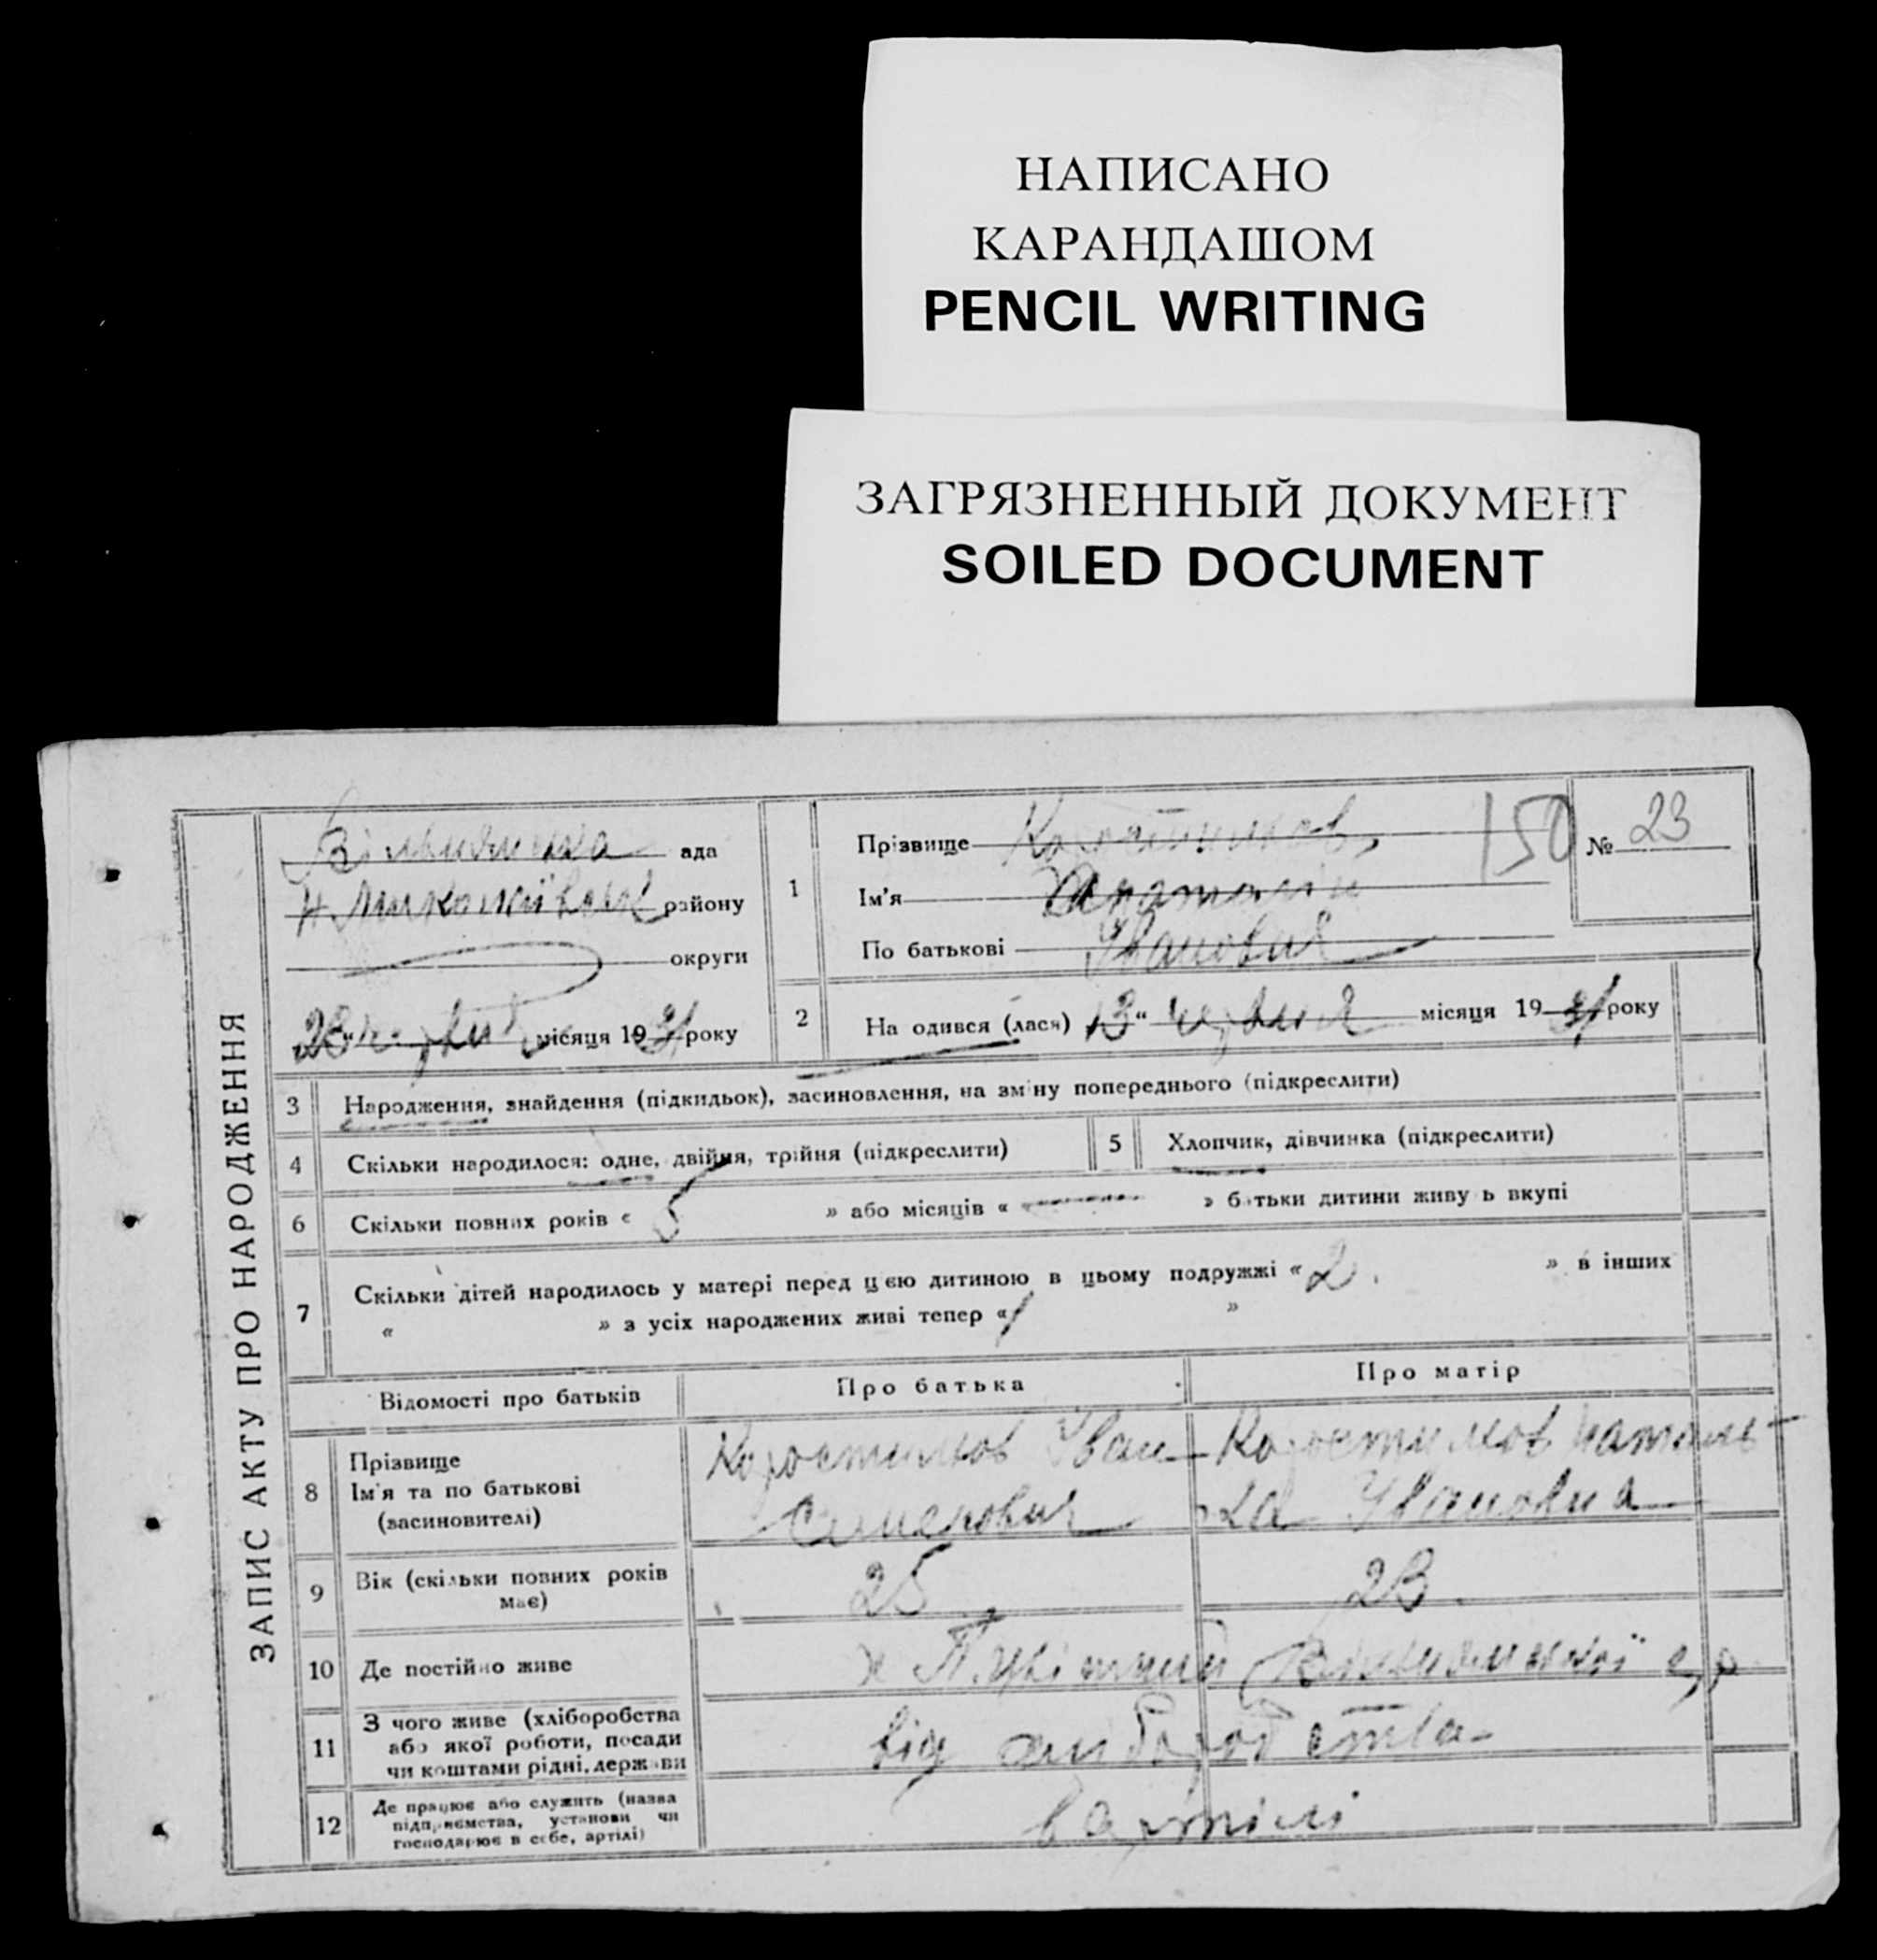 НАПИСАНО
КАРАНДАШОМ
PENCIL WRITING
ЗАГРЯЗНЕННЫЙ ДОКУМЕНТ
SOILED DOCUMENT
ЗАПИС АКТУ ПРО НАРОДЖЕННЯ
ада
району
округи
23 " червня місяця 1931 року
1
Прізвище
150
№ 23
Ім'я Анатолій
По батькові Іванович
2
На одився (лася) 13 " червня місяця 1931 року
3 Народження, знайдення (підкидьок), засиновлення, на зміну попереднього (підкреслити)
4 Скільки народилося: одне, двійня, трійня (підкреслити)
5 Хлопчик, дівчинка (підкреслити)
6 Скільки повних років « 5 » або місяців « — » батьки дитини живу ь вкупі
7 Скільки дітей народилось у матері перед цією дитиною в цьому подружжі « 2. » в інших
« » з усіх народжених живі тепер « 1 »
Відомості про батьків Про батька Про матір
8 Прізвище
Ім'я та по батькові
(засиновителі)
Іван
Семенович
Івановна
9 Вік (скільки повних років
має)
25 23.
10 Де постійно живе
11 З чого живе (хліборобства
або якої роботи, посади
чи коштами рідні, держави
від хліборобства
12 Де працює або служить (назва
підприємства, установи чи
господарює в себе, артілі)
в артілі